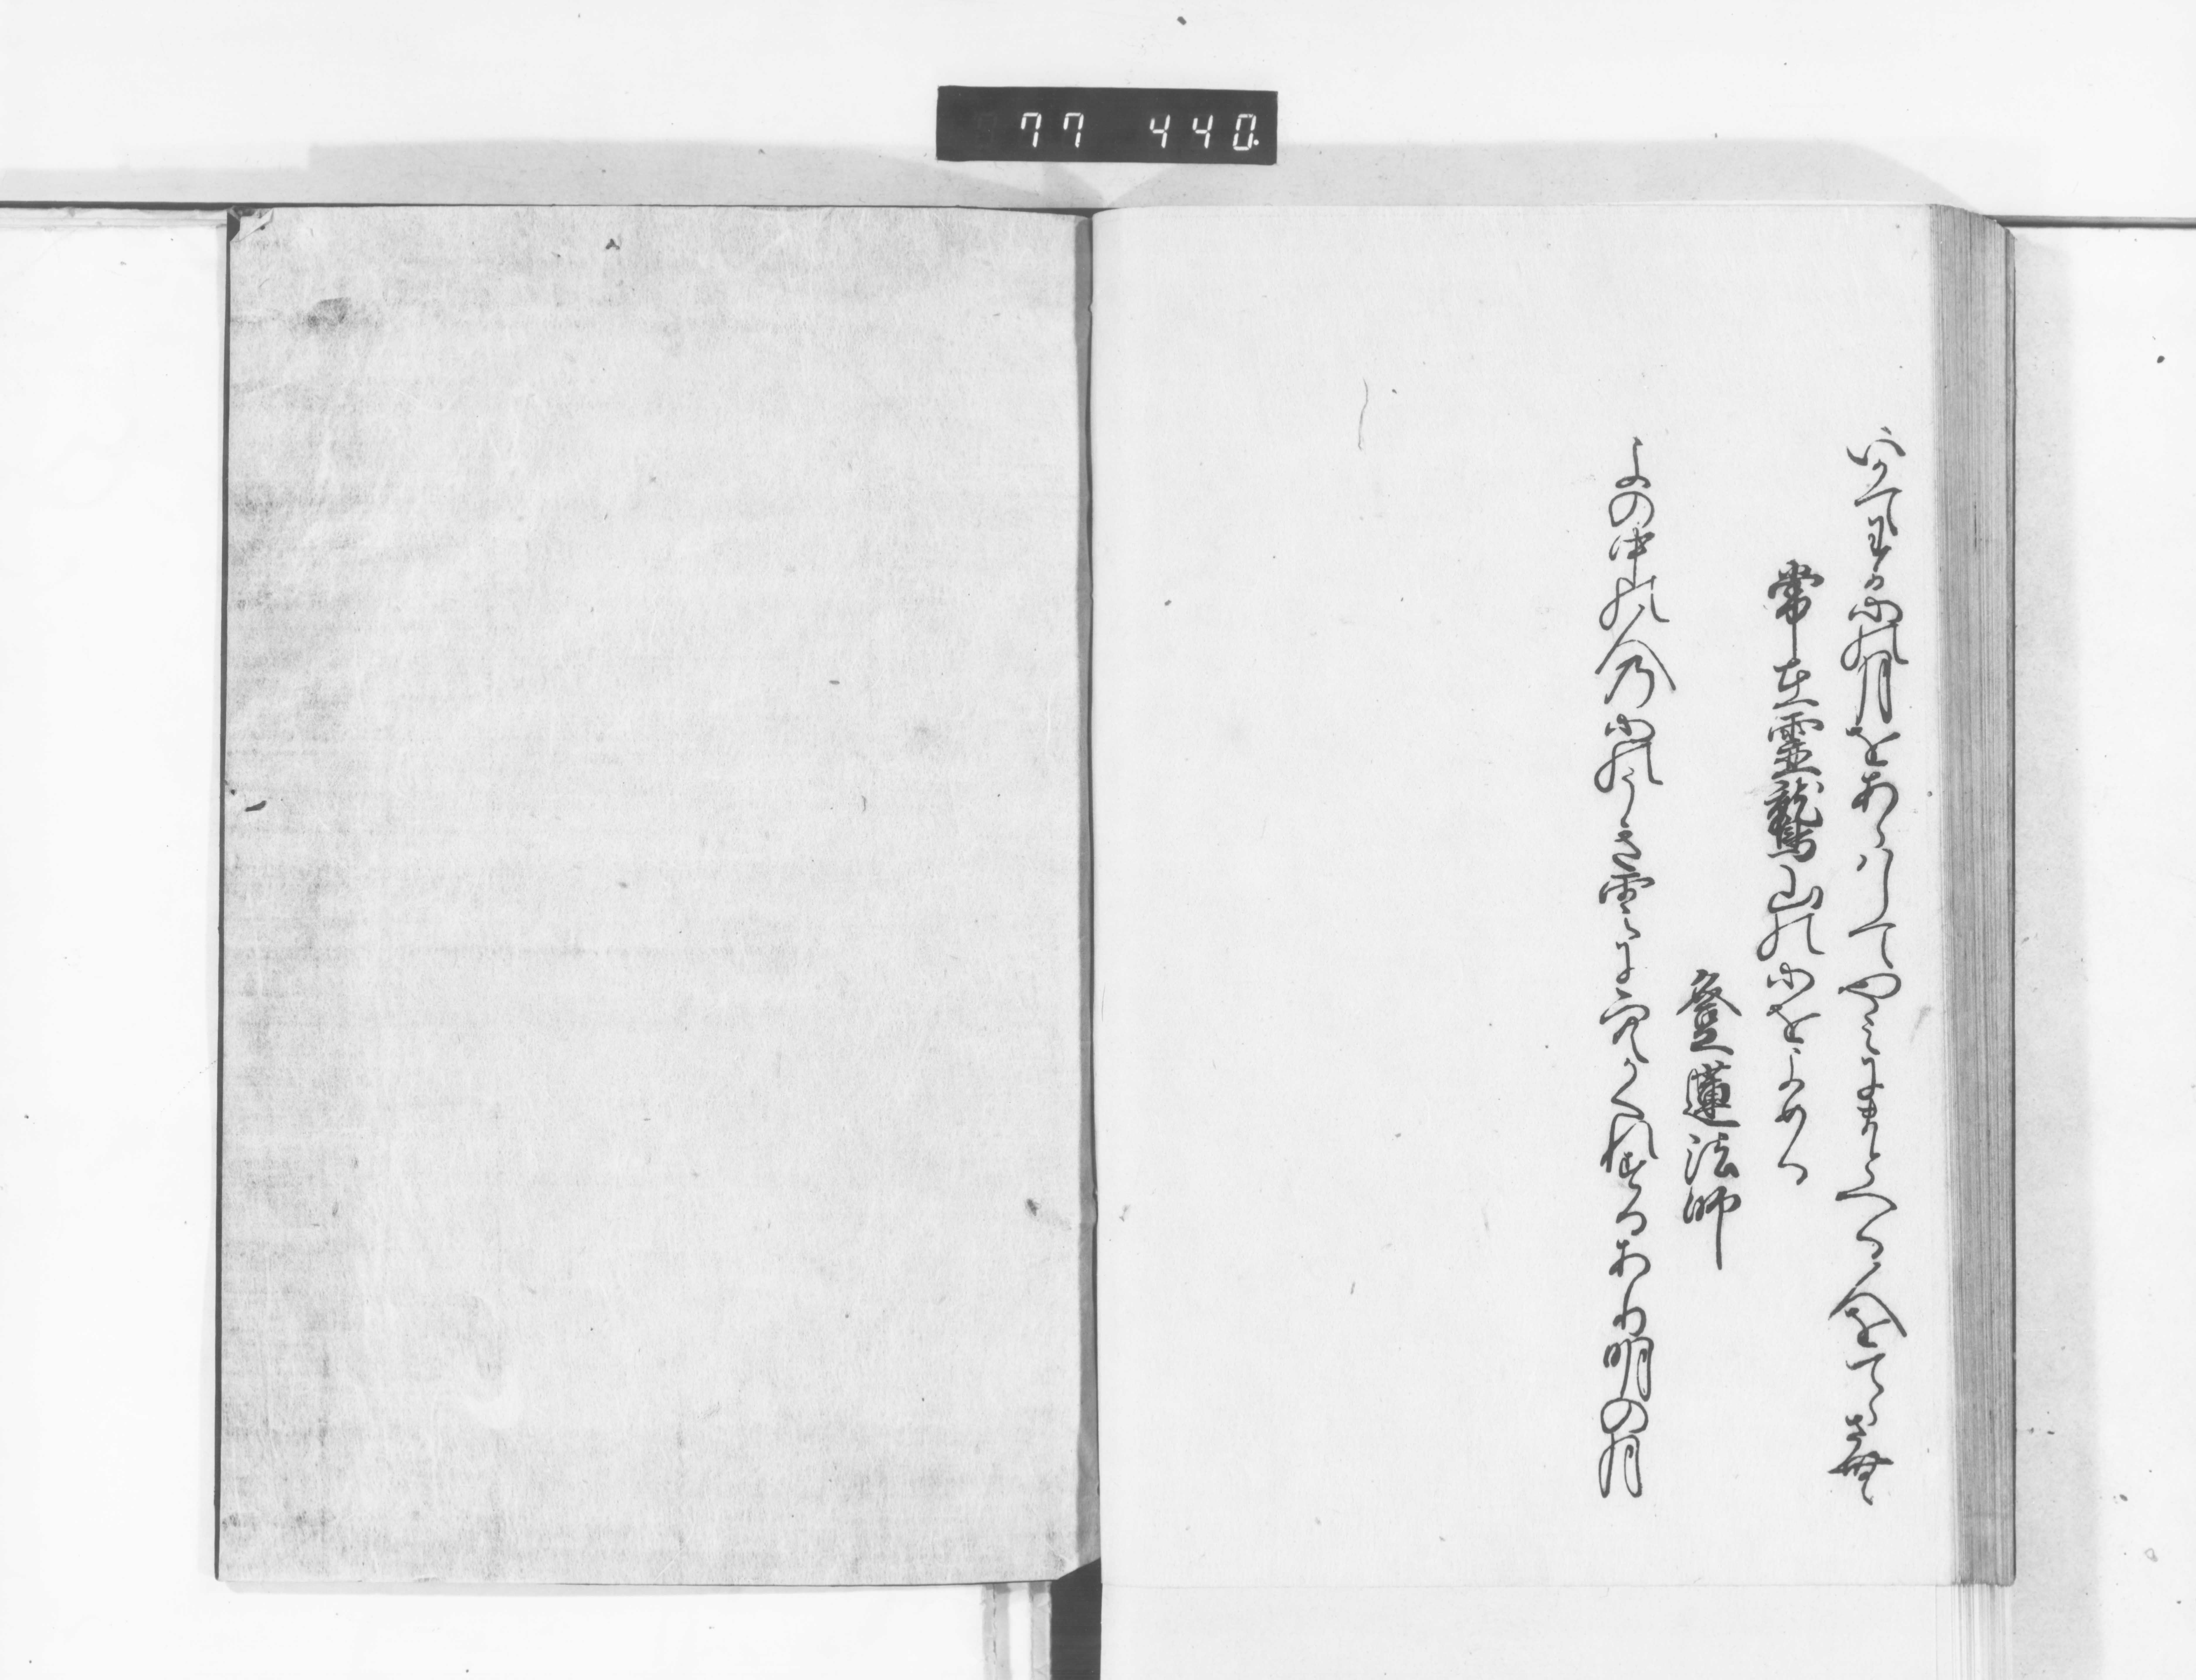 77 440
いかてわか心の月をあらはしてやみにまとへる人をてらさむ
常在靈鷲山の心をよめる
登蓮法師
よの中の人の心のうき雲にそらかくれするあり明の月